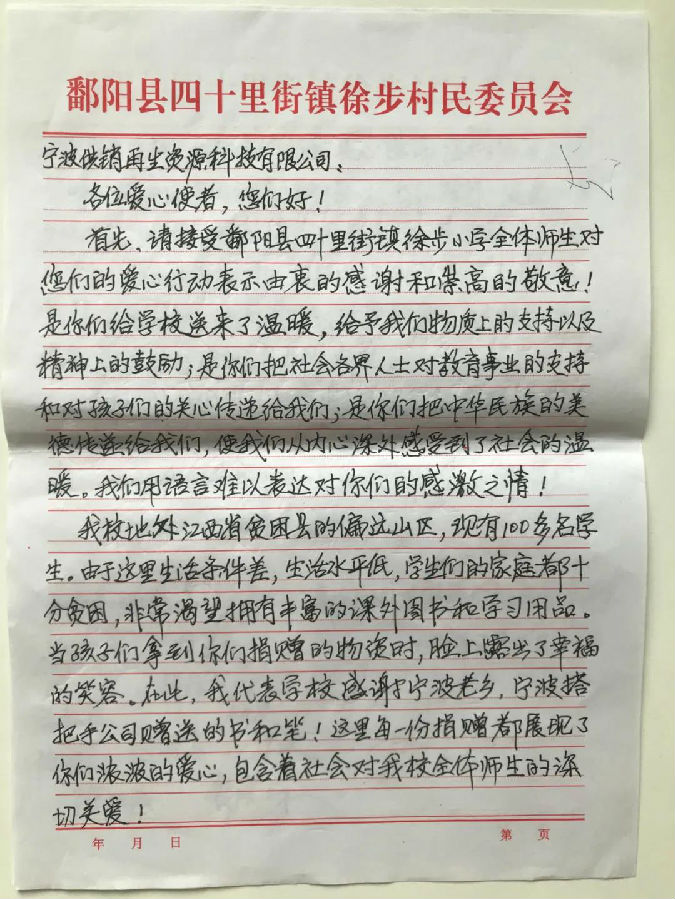 鄱阳县四十里街镇徐步村民委员会
宁波供销再生资源科技有限公司：
各位爱心使者，您们好！
首先、请接受鄱阳县四十里街镇徐步小学全体师生对
您们的爱心行动表示由衷的感谢和崇高的敬意！
是你们给学校送来了温暖，给予我们物质上的支持以及
精神上的鼓励；是你们把社会各界人士对教育事业的支持
和对孩子们的关心传递给我们；是你们把中华民族的美
德传递给我们，使我们从内心深外感受到了社会的温
暖。我们用语言难以表达对你们的感激之情！
我校地处江西省贫困县的偏远山区，现有100多名学
生。由于这里生活条件差，生活水平低，学生们的家庭都十
分贫困，非常渴望拥有丰富的课外图书和学习用品。
当孩子们拿到你们捐赠的物资时，脸上露出了幸福
的笑容。在此，我代表学校感谢宁波老乡，宁波搭
把手公司赠送的书和笔！这里每一份捐赠都展现了
你们浓浓的爱心，包含着社会对我校全体师生的深
切关爱！
年 月 日 第 页